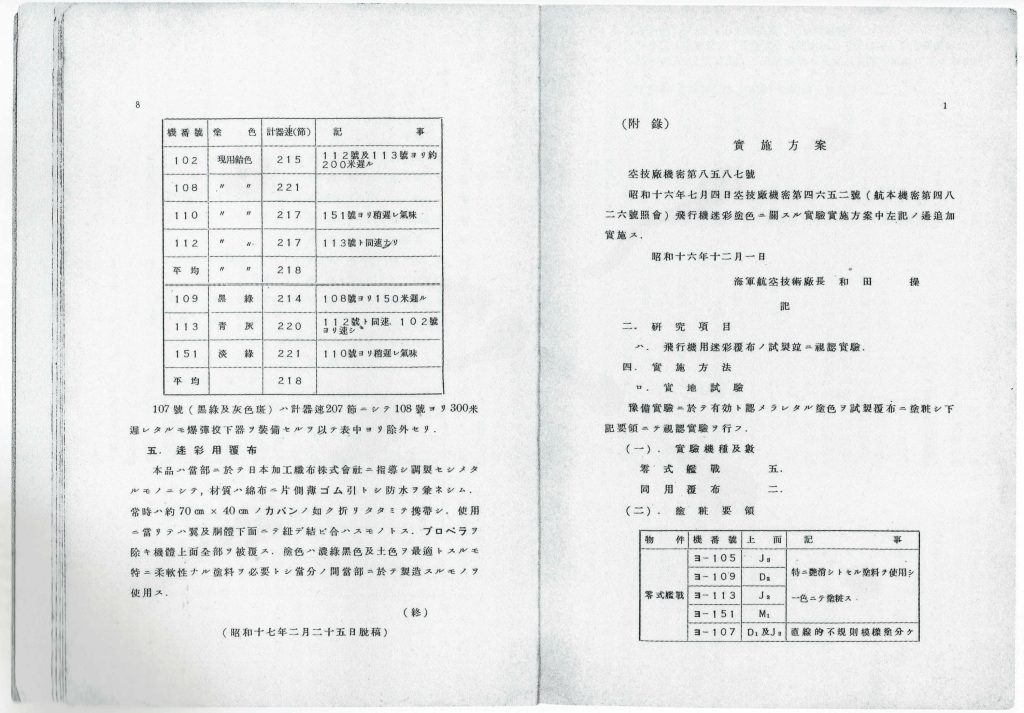 8
機番號 塗色 計器速(節) 記事
102 現用飴色 215 112號及113號ヨリ約200米遲ル
108 〃 〃 221
110 〃 〃 217 151號ヨリ稍遲レ氣味
112 〃 〃 217 113號ト同速ナリ
平均 〃 〃 218
109 黒綠 214 108號ヨリ150米遲ル
113 青灰 220 112號ト同速、102號ヨリ速シ
151 淡綠 221 110號ヨリ稍遲レ氣味
平均 218
107號(黒綠及灰色斑)ハ計器速207節ニシテ108號ヨリ300米
遲レタルモ爆彈投下器ヲ裝備セルヲ以テ表中ヨリ除外セリ.
五. 迷彩用覆布
本品ハ當部ニ於テ日本加工織布株式會社ニ指導シ調製セシメタ
ルモノニシテ,材質ハ綿布ニ片側薄ゴム引トシ防水ヲ兼ネシム.
常時ハ約70㎝×40㎝ノカバンノ如ク折リタタミテ携帶シ.使用
ニ當リテハ翼及胴體下面ニテ紐デ結ビ合ハスモノトス.プロペラヲ
除キ機體上面全部ヲ被覆ス.塗色ハ濃綠黒色及土色ヲ最適トスルモ
特ニ柔軟性ナル塗料ヲ必要トシ當分ノ間當部ニ於テ製造スルモノヲ
使用ス.
(終)
(昭和十七年二月二十五日脱稿)
1
(附錄)
實施方案
空技廠機密第八五八七號
昭和十六年七月四日空技廠機密第四六五二號(航本機密第四八
二六號照會)飛行機迷彩塗色ニ關スル實驗實施方案中左記ノ通追加
實施ス.
昭和十六年十二月一日
海軍航空技術廠長 和田 操
記
二. 研究項目
ハ. 飛行機用迷彩覆布ノ試製竝ニ視認實驗.
四. 實施方法
ロ. 實地試驗
豫備實驗ニ於テ有効ト認メラレタル塗色ヲ試製覆布ニ塗粧シ下
記要領ニテ視認實驗ヲ行フ.
(一). 實驗機種及數
零式艦戰 五.
同用覆布 二.
(二). 塗粧要領
物件 機番號 上面 記事
零式艦戰
ヨ-105 J₃
ヨ-109 D₂
ヨ-113 J₂
ヨ-151 M₁
特ニ艶消シトセル塗料ヲ使用シ
一色ニテ塗粧ス.
ヨ-107 D₁及J₃ 直線的不規則模樣塗分ケ